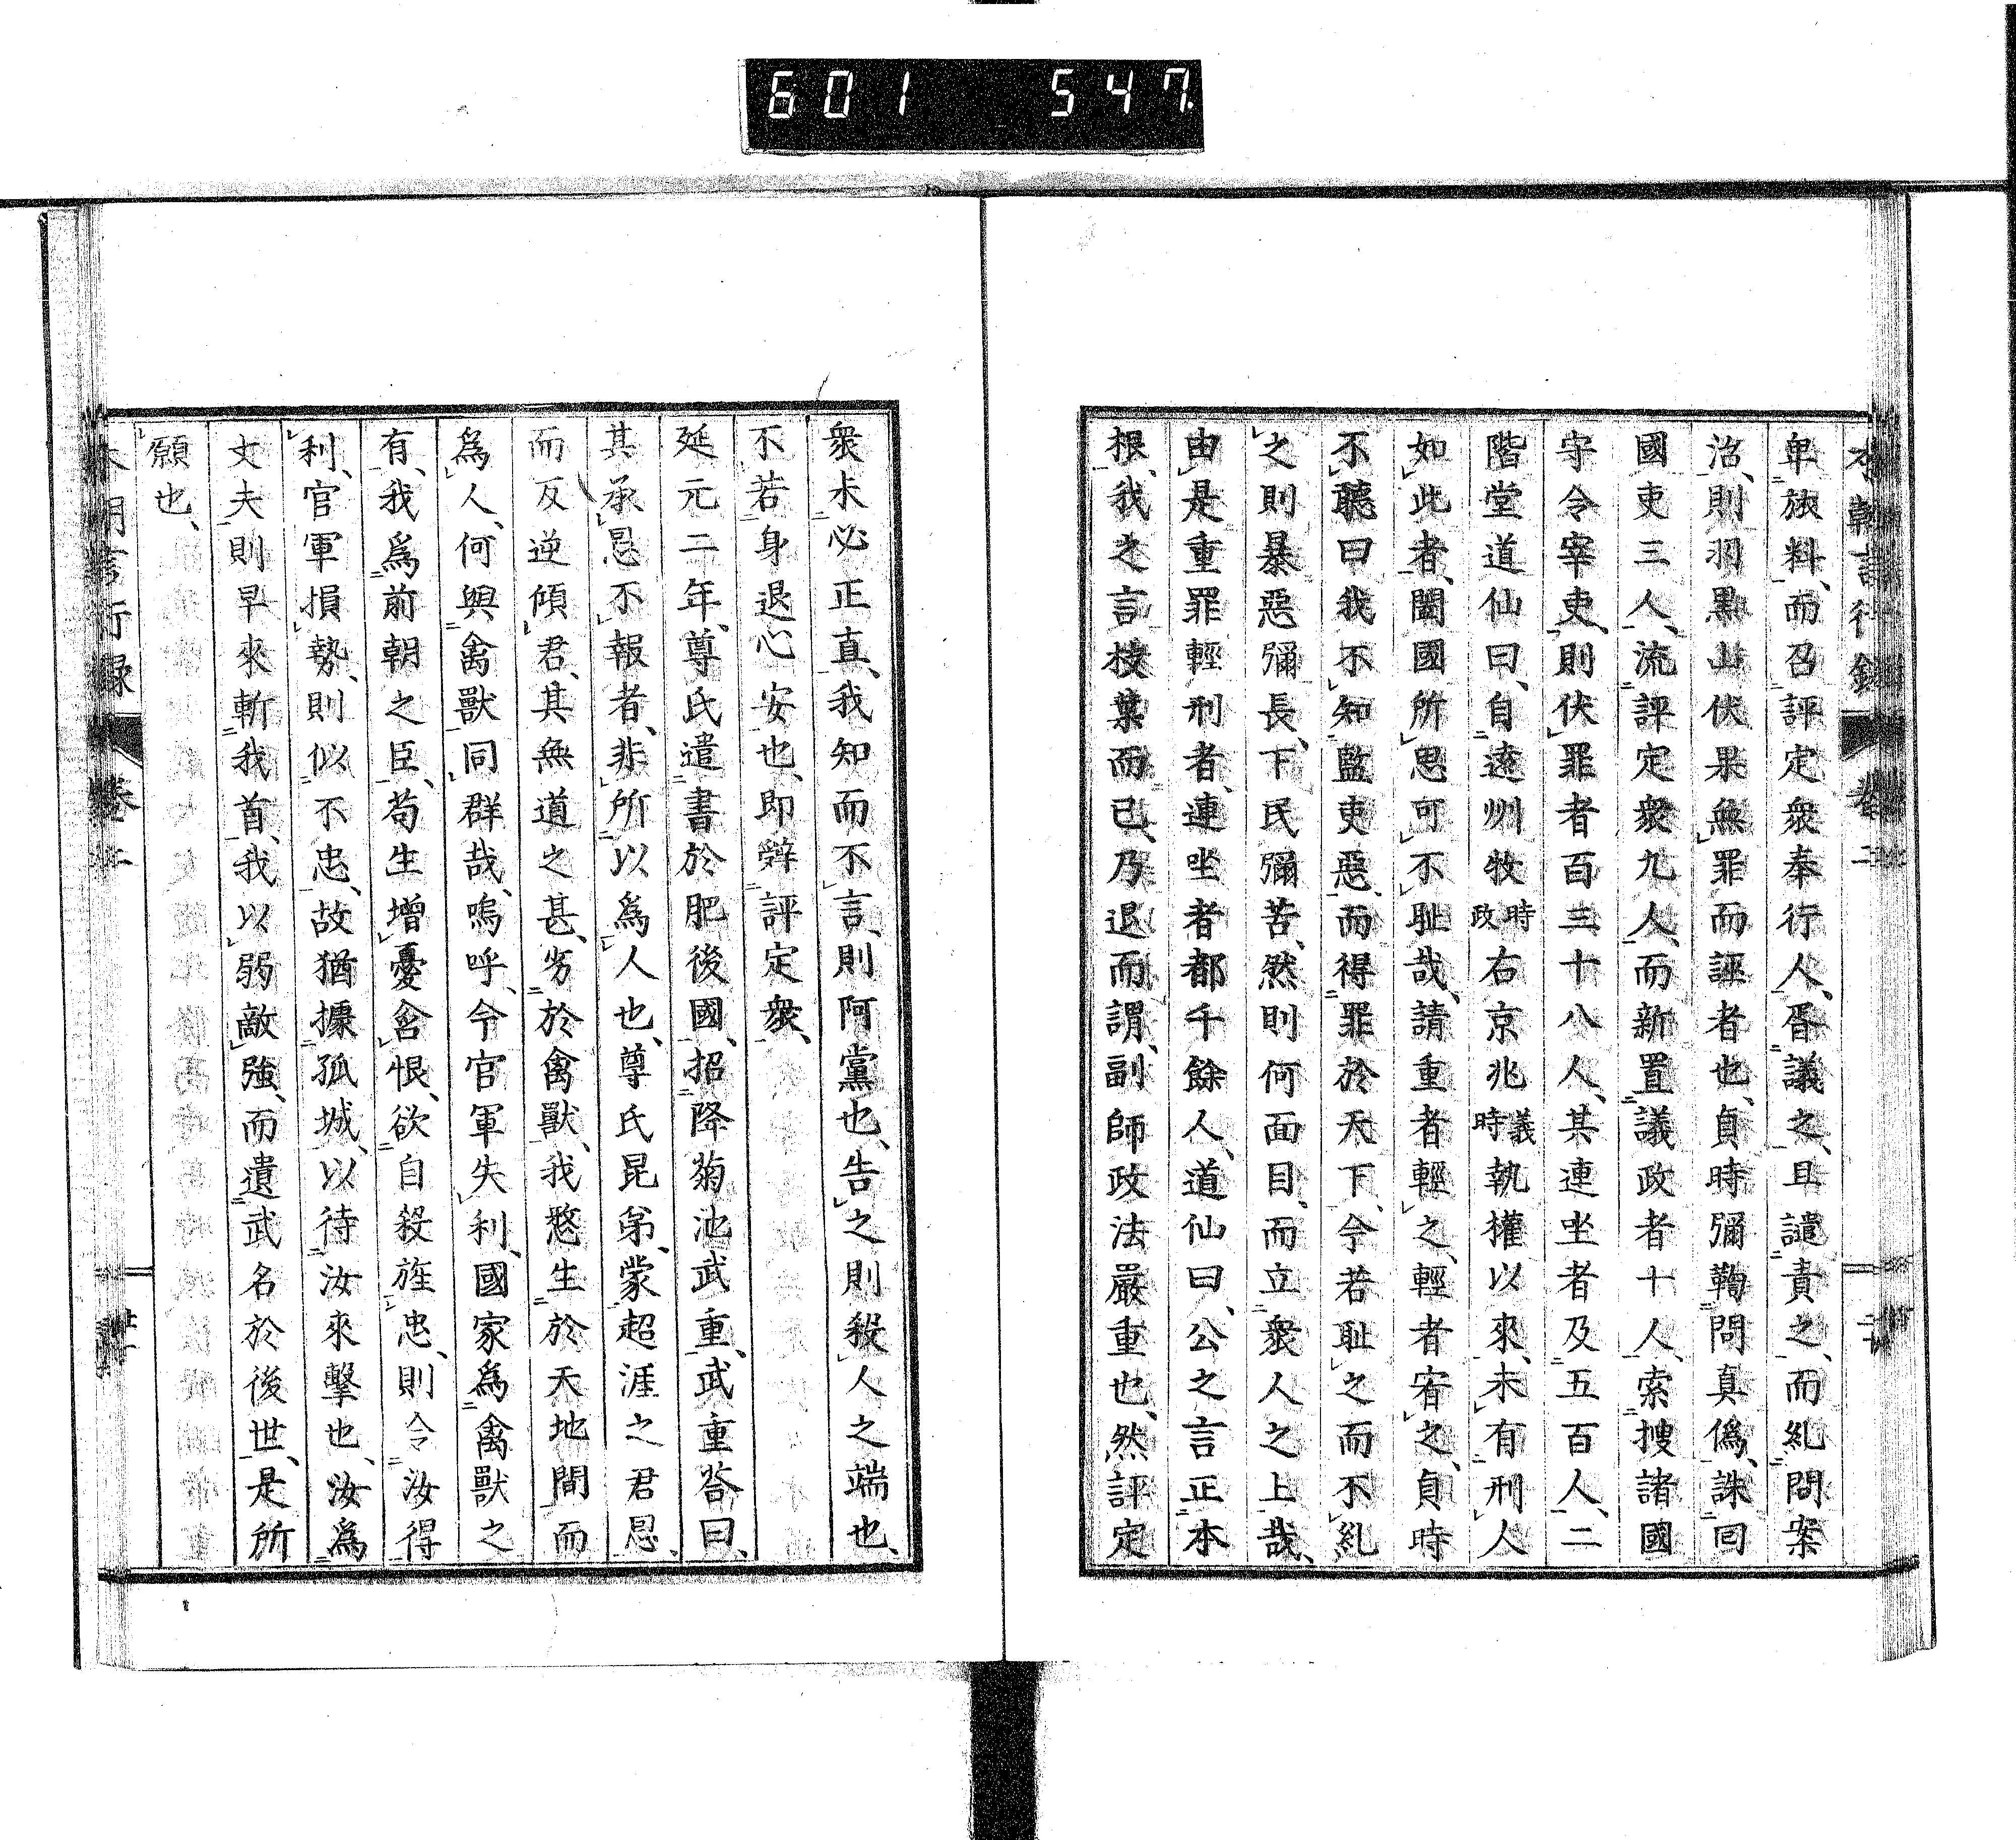 601 547
卑族料、而召評定衆奉行人、胥議之、且譴責之、而糺問案
沼、則羽黒山伏果無罪而誣者也、貞時彌鞫問真偽、誅回
國吏三人、流評定衆九人、而新置議政者十人、索捜諸國
守令宰吏、則伏罪者百三十八人、其連坐者及五百人、二
階堂道仙曰、自遠州牧時政右京兆義時執權以來、未有刑人
如此者、闔國所思可不耻哉、請重者輕之、輕者宥之、貞時
不聽曰我不知監吏惡、而得罪於天下、今若耻之而不糺
之則暴惡彌長、下民彌苦、然則何面目、而立衆人之上哉、
由是重罪輕刑者、連坐者都千餘人、道仙曰、公之言正本
根、我之言枝葉而已、乃退而謂、副師政法嚴重也、然評定
衆未必正直、我知而不言、則阿黨也、告之則殺人之端也、
不若身退心安也、即辭評定衆、
延元二年、尊氏遣書於肥後國、招降菊池武重、武重答曰、
其承恩不報者、非所以爲人也、尊氏昆弟、蒙超涯之君恩、
而反逆傾君、其無道之甚、劣於禽獸、我愁生於天地間而
爲人、何與禽獸同群哉、嗚呼、今官軍失利、國家爲禽獸之
有、我爲前朝之臣、苟生増憂含恨、欲自殺旌忠、則令汝得
利、官軍損勢、則似不忠、故猶據孤城、以待汝來撃也、汝爲
丈夫則早來斬我首、我以弱敵強、而遺武名於後世、是所
願也、